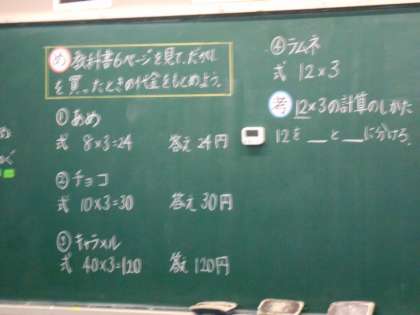 め 教科書6ページを見て、だがし
を買ったときの代金をもとめよう。
① あめ
式 8×3=24 答え 24円
② チョコ
式 10×3=30 答え 30円
③ キャラメル
式 40×3=120 答え 120円
④ ラムネ
式 12×3
考 12×3の計算のしかた
12を__と__に分ける。